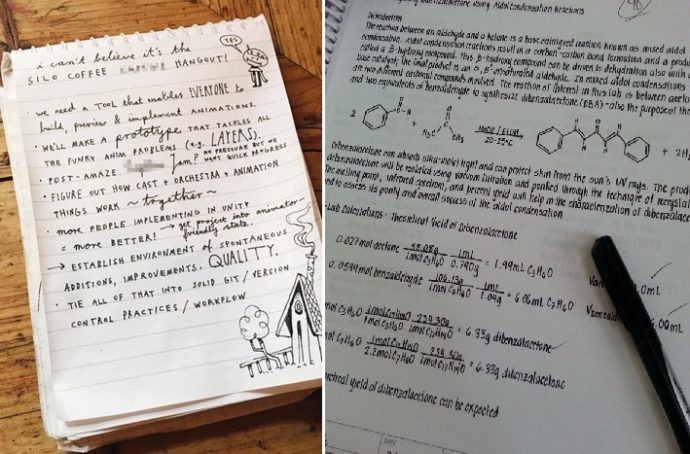 i can't believe it's the
SILO COFFEE HANGOUT!
YES.
• we need a TOOL that enables EVERYONE to
build, preview & implement ANIMATIONS.
• WE'LL MAKE A prototype THAT TACKLES ALL
THE FUNKY ANIM PROBLEMS (e.g. LAYERS).
• POST-AMAZE Jam?
NO PRESSURE BUT WE
WANT QUICK PROGRESS
• FIGURE OUT HOW CAST + ORCHESTRA + ANIMATION
THINGS WORK ~ together ~
• MORE PEOPLE IMPLEMENTING IN UNITY
= MORE BETTER! → project into animator-
friendly state.
→ ESTABLISH ENVIRONMENT of SPONTANEOUS
ADDITIONS, IMPROVEMENTS. QUALITY.
• TIE ALL OF THAT INTO SOLID GIT / VERSION
CONTROL PRACTICES / WORKFLOW
using Aldol Condensation Reactions
Introduction
The reaction between an aldehyde and a ketone is a base catalyzed reaction known as mixed aldol
condensation. Aldol condensation reactions result in a carbon-carbon bond formation and a
called a β-hydroxy compound. This β-hydroxy compound can be driven to dehydration also with a
base catalyst; the final product is an α, β-unsaturated aldehyde. In mixed aldol condensations
are two different carbonyl compounds involved. The reaction of interest in this lab is between
and two equivalents of benzaldehyde to synthesize dibenzalacetone (DBA) - also the purpose of the
2 H + H₃C CH₃ NaOH / EtOH
20-25°C + 2H₂
Dibenzalacetone can absorb ultra-violet light and can protect skin from the sun's UV rays. The
dibenzalacetone will be isolated using vacuum filtration and purified through the technique of
The melting point, infrared spectrum, and percent yield will help in the characterization of
and to assess its purity and overall success of the aldol condensation.
-Lab Calculations: Theoretical Yield of Dibenzalacetone
0.027 mol acetone 58.08g 1mL = 1.99mL C₃H₆O
1mol C₃H₆O 0.790g
0.0594 mol benzaldehyde 106.13g 1mL = 6.06mL C₇H₆O
1mol C₇H₆O 1.04g
mol C₃H₆O 1mol C₁₇H₁₄O 234.30g = 6.33g dibenzalacetone
1mol C₃H₆O 1mol C₁₇H₁₄O
mol C₇H₆O 1mol C₁₇H₁₄O 234.30g = 6.33g dibenzalacetone
1mol C₁₇H₁₄O
yield of dibenzalacetone can be expected
DATE